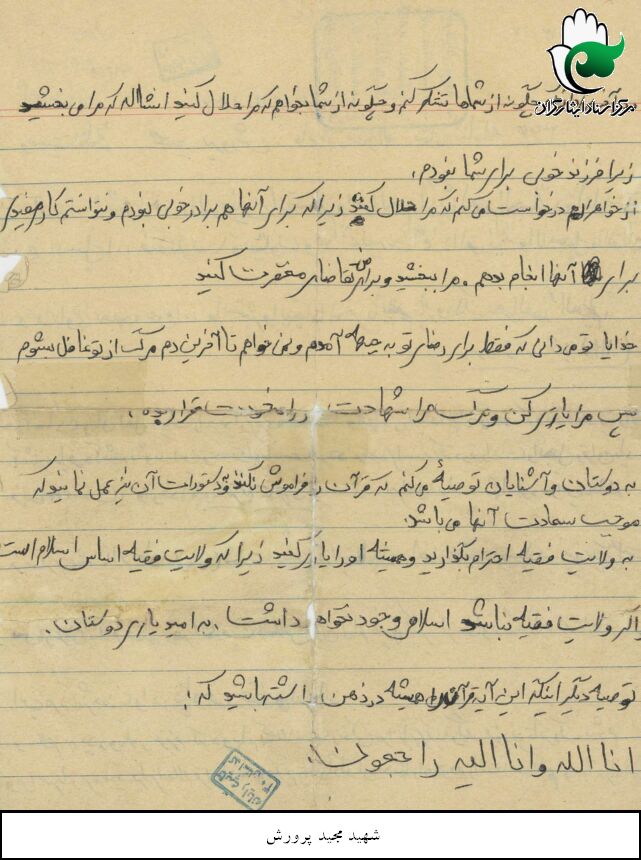 مرکز اسناد ایثارگران
چگونه از شماها تشکر کنم و چگونه از شما بخواهم که مرا حلال کنید انشاالله که مرا می بخشید
زیرا فرزند خوبی برای شما نبودم.
از خواهرانم درخواست می کنم که مرا حلال کنند زیرا که برای آنها هم برادر خوبی نبودم و نتوانستم کار مفیدی
برای آنها انجام بدهم. مرا ببخشید و برای من تقاضای مغفرت کنید
خدایا تو می دانی که فقط برای رضای تو به جبهه آمدم و نمی خواهم تا آخرین دم مرگ از تو غافل بشوم
پس مرا یاری کن و مرگ مرا شهادت در راه خودت قرار بده.
به دوستان و آشنایان توصیهٔ می کنم که قرآن را فراموش نکنند و به دستورات آن نیز عمل نمایند که
موجب سعادت آنها می باشد.
به ولایت فقیه احترام بگذارید و همیشه او را یاری کنید زیرا که ولایت فقیه اساس اسلام است
و اگر ولایت فقیه نباشد اسلام وجود نخواهد داشت. به امید یاری دوستان.
توصیه دیگر اینکه این آیه قرآن را همیشه در ذهن داشته باشید که:
انا الله و انا الیه راجعون.
شهید مجید پرورش